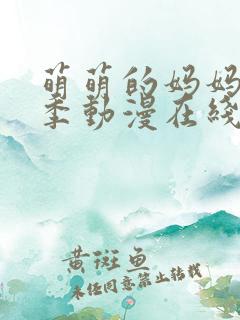 萌萌的妈妈
季動漫在綫
黄斑鱼
未经同意禁止转载